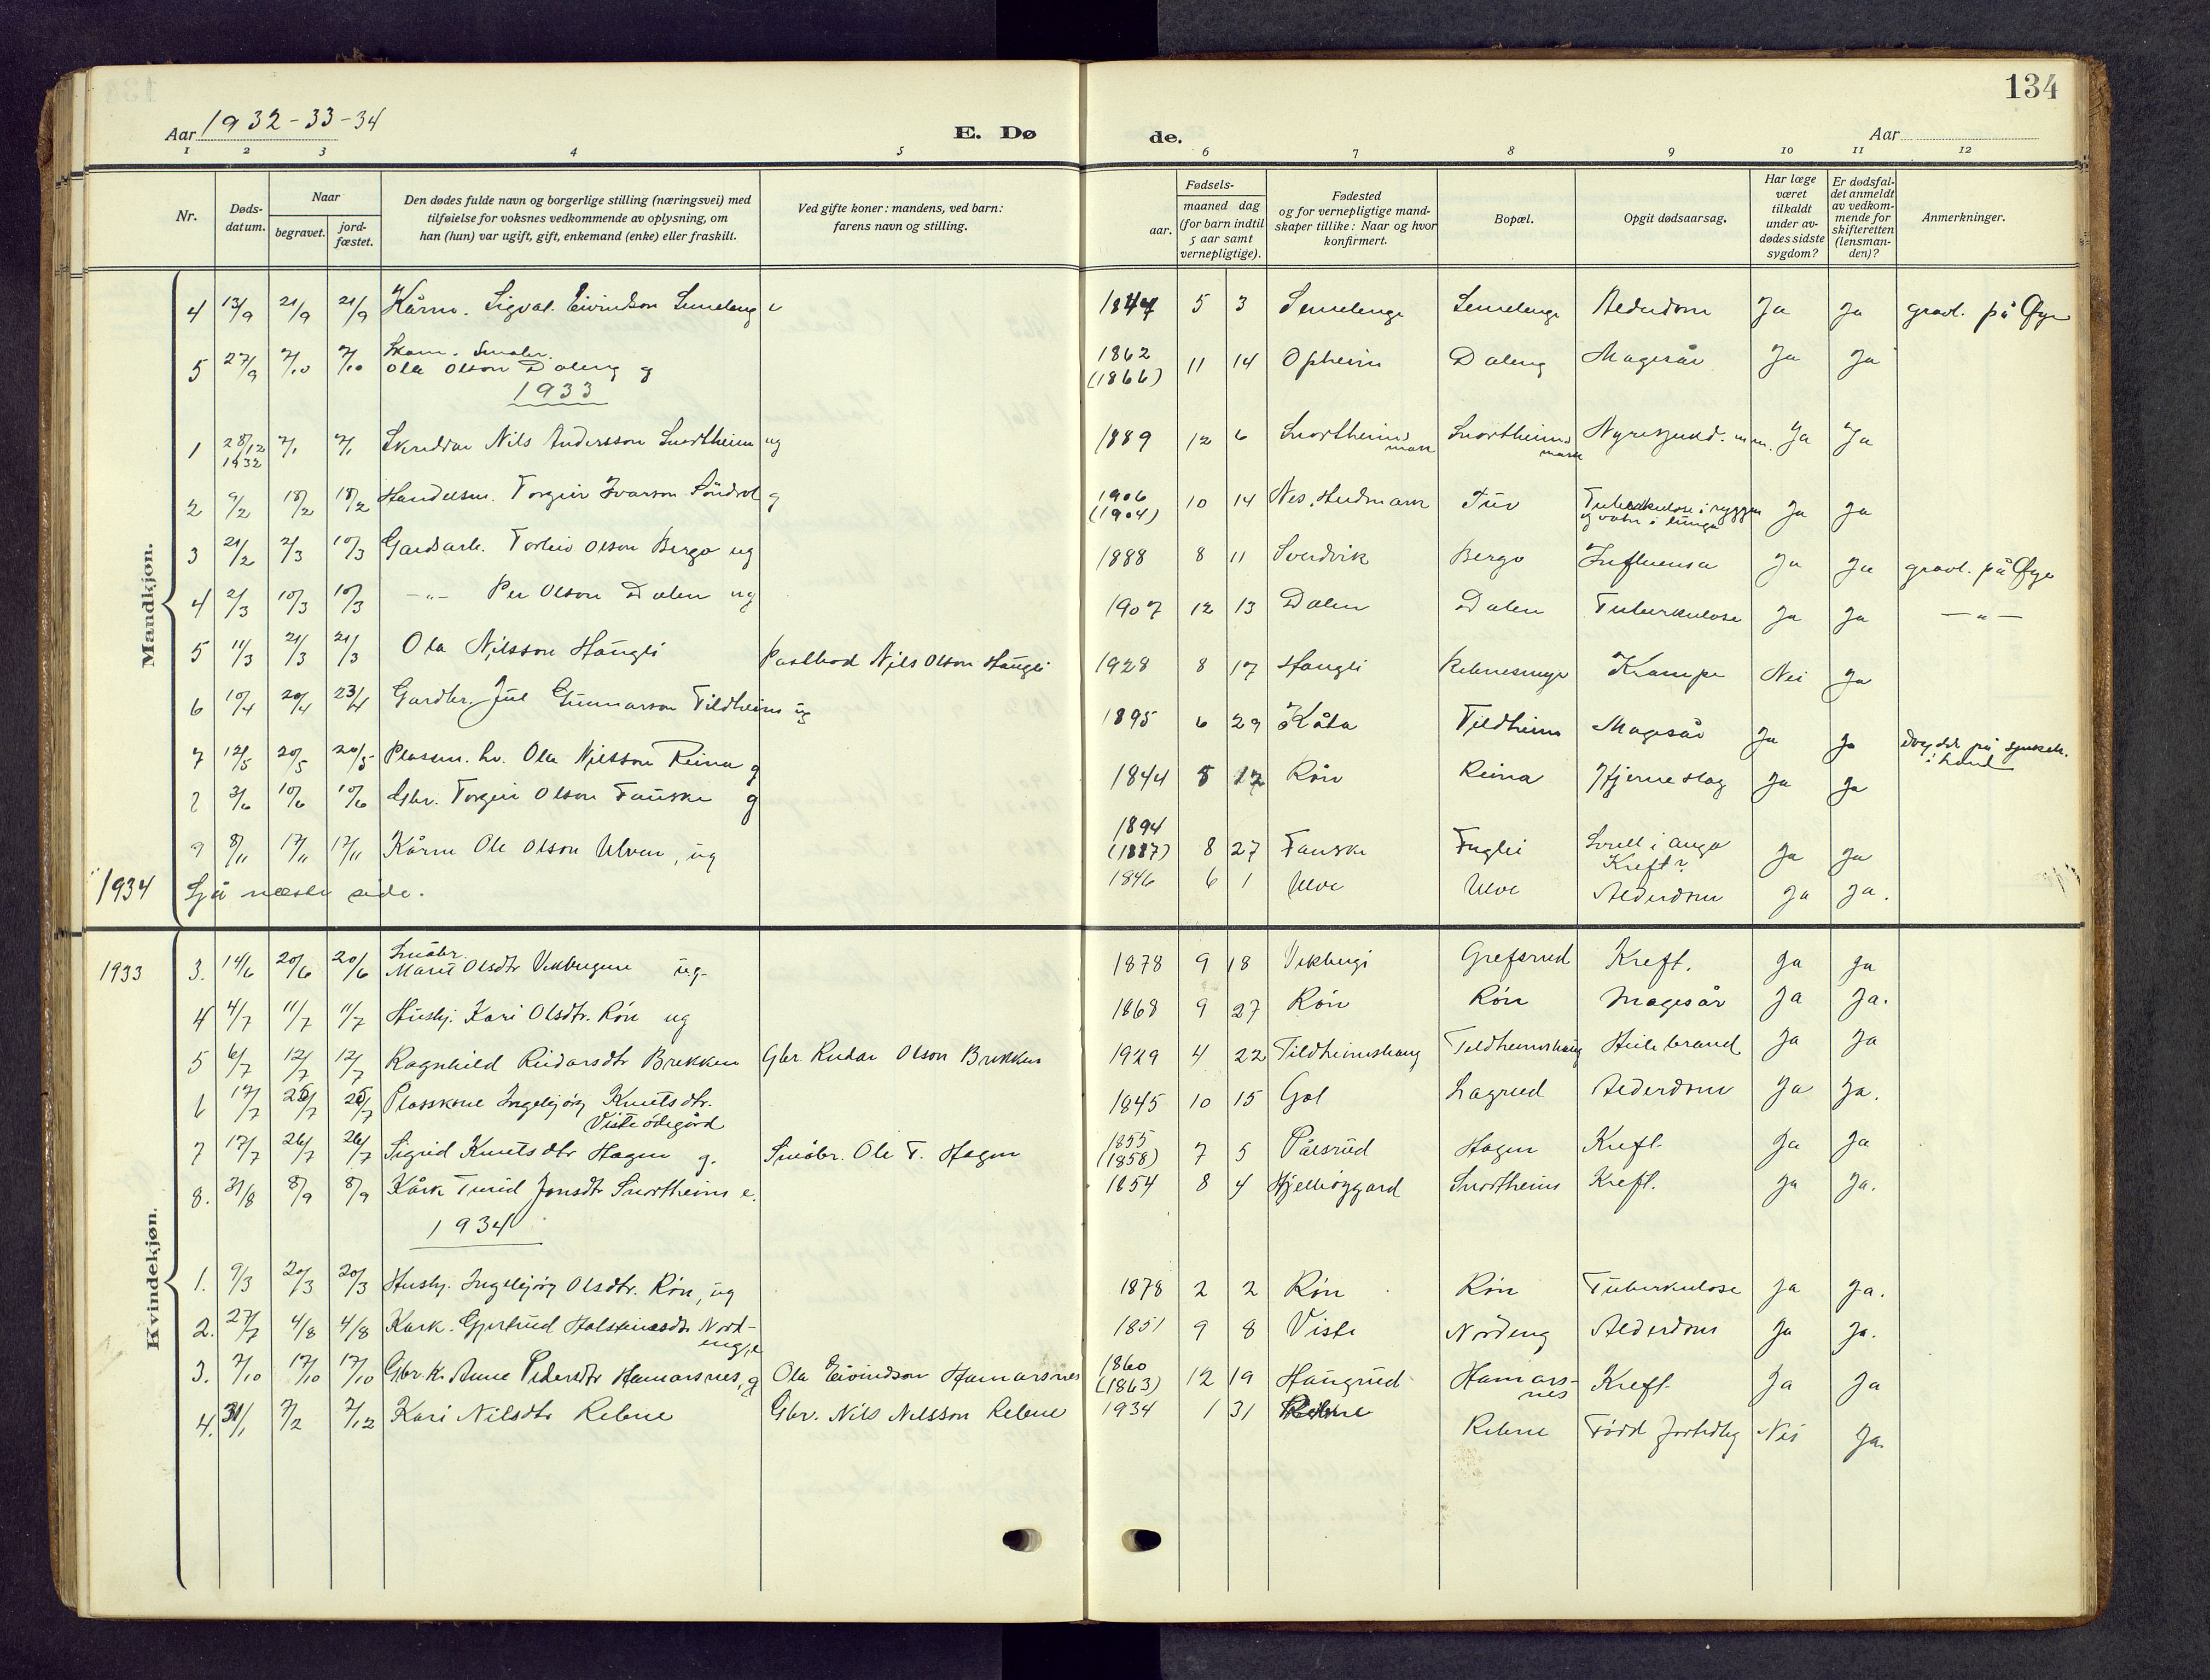 134
Aar 1932-33-34
E. Dø
de.
Aar
1 2 3 4 5 6 7 8 9 10 11 12
Nr.
Døds-
datum.
Naar
begravet.
jord-
fæstet.
Den dødes fulde navn og borgerlige stilling (næringsvei) med
tilføielse for voksnes vedkommende av oplysning, om
han (hun) var ugift, gift, enkemand (enke) eller fraskilt.
Ved gifte koner: mandens, ved barn:
farens navn og stilling.
Fødsels-
aar.
maaned dag
(for barn indtil
5 aar samt
vernepligtige).
Fødested
og for vernepligtige mand-
skaper tillike: Naar og hvor
konfirmert.
Bopæl.
Opgit dødsaarsag.
Har læge
været
tilkaldt
under av-
dødes sidste
sygdom?
Er dødsfal-
det anmeldt
av vedkom-
mende for
skifteretten
(lensman-
den)?
Anmerkninger.
Mandkjøn.
4 13/9 21/9 21/9 Kårm. Sigval. Eivindson Semeleng e 1844 5 3 Semelenge Semelenge Alderdom Ja Ja gravl. på Øye
5 27/9 7/10 7/10 Ola Olson Daleng g 1862 (1866) 11 14 Opheim Daleng Magesår Ja Ja
1933
1 28/12 1932 7/1 7/1 Skreddar Nils Andersson Snortheim ug 1889 12 6 Snortheims mark Snortheims mark Ja Ja
2 9/2 18/2 18/2 Handelsm. Torgeir Ivarson g 1906 (1904) 10 14 Nes, Hedmark Tuv Tuberkulose i ryggen Ja Ja
3 21/2 2/3 10/3 Gardsarb. Torleiv Olson Bergo ug 1888 8 11 Sverdvik Bergo Influensa Ja Ja gravl. på Øye
4 2/3 10/3 10/3 —"— Per Olson Dalen ug 1907 12 13 Dalen Dalen Tuberkulose Ja Ja —"—
5 11/3 21/3 21/3 Ola Nilsson Haugli Postbod Nils Olson Haugli 1928 8 17 Haugli Krampe Nei Ja
6 10/4 20/4 23/4 Gardbr. Jul Gunnarson Tildheim ug 1895 6 29 Kåta Tildheim Magesår Ja Ja
7 12/5 20/5 20/5 Plassm. Ola Nilsson Reina g 1844 8 17 Røn Reina Hjerneslag Ja Ja
8 3/6 10/6 10/6 Gbr. Torgeir Olson Fauske g 1894 (1887) 8 27 Fauske Fuglei Svull i auga Kreft? Ja Ja
9 8/11 17/11 17/11 Kårm Ole Olson Ulven, ug 1846 6 1 Ulve Ulve Alderdom Ja Ja.
1934 Sjå næste side.
Kvindekjøn.
1933 3. 14/6 20/6 20/6 Småbr. Marit Olsdtr Vikbergene ug. 1878 9 18 Vikbergi Grefsrud Kreft. Ja Ja
4 4/7 11/7 11/7 Hushj. Kari Olsdtr. Røn ug 1868 9 27 Røn Røn Magesår Ja Ja.
5 6/7 12/7 12/7 Ragnhild Reidarsdtr Brekken Gbr. Reidar Olson Brekken 1929 4 22 Tildheimshaug Tildheimshaug Ja Ja
6 17/7 25/7 25/7 Plasskone Ingebjørg Knutsdtr. Viste ødegård 1845 10 15 Gol Lagrud Alderdom Ja Ja.
7 17/7 26/7 26/7 Sigrid Knutsdtr Hagen g. Småbr. Ole T. Hagen 1855 (1858) 7 5 Pålsrud Hagen Kreft Ja Ja
8. 31/8 8/9 8/9 Kårk Turid Jonsdtr Snortheim e. 1854 8 4 Snortheim Kreft. Ja Ja.
1934
1. 9/3 20/3 20/3 Hushj. Ingebjørg Olsdtr. Røn, ug 1878 2 2 Røn Røn Tuberkulose Ja Ja.
2. 27/7 4/8 4/8 Kårk. Gjertrud Halsteinsdtr Nord-
eng, e 1851 9 8 Viste Nordeng Alderdom Ja Ja.
3. 7/10 17/10 17/10 Gbr.k. Anne Pedersdtr Hamarsnes, g Ola Eivindson Hamarsnes 1860 (1863) 12 19 Haugrud Hamars-
nes Kreft Ja Ja
4. 31/1 7/2 7/12 Kari Nilsdtr Rebne Gbr. Nils Nilsson Rebne 1934 1 31 Rebne Rebne Fødd fortidleg Nei Ja.